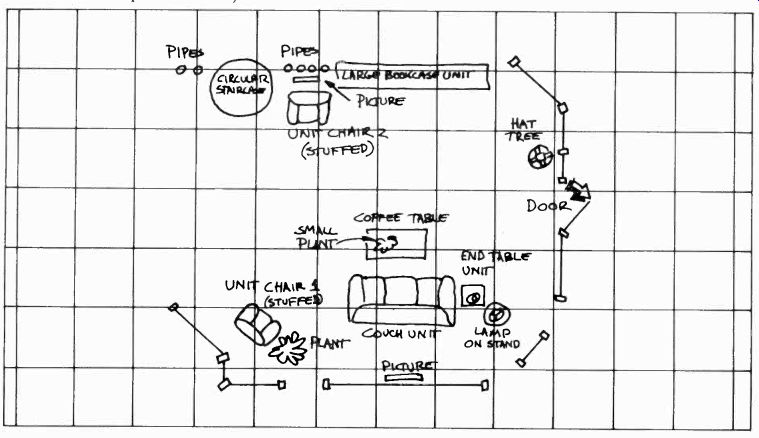 PIPES
PIPES
CIRCULAR
STAIRCASE
LARGE BOOKCASE UNIT
PICTURE
UNIT CHAIR 2
(STUFFED)
HAT
TREE
DOOR
COFFEE TABLE
SMALL
PLANT
END TABLE
UNIT
UNIT CHAIR 1
(STUFFED)
PLANT
COUCH UNIT
LAMP
ON STAND
PICTURE